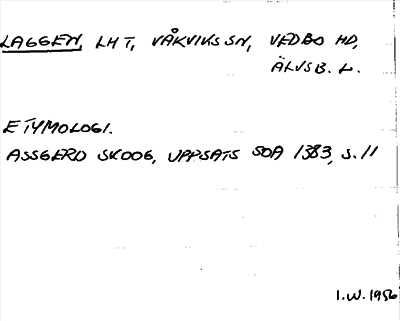 LAGGEN, LHT, VÅRVIKS SN, VEDBO HD,
ÄLVSB. L.
ETYMOLOGI.
ASSGERD SKOOG, UPPSATS SOA 1383, S. 11
I.W. 1956